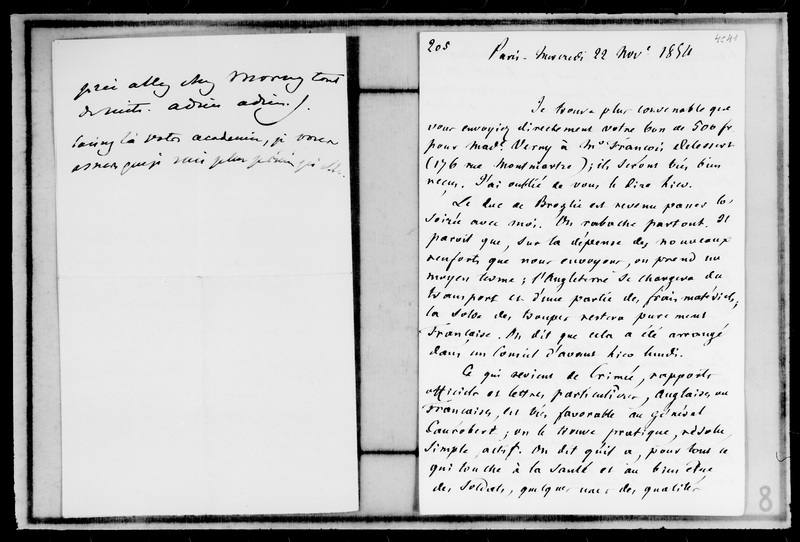 allez chez Morny tout
de suite. adieu adieu.
à votre academie, je vous
que je suis plus
205
4241
Paris - Mercredi 22 Nov. 1854
Je trouve plus convenable que
vous envoyiez directement votre bon de 500 fr
pour Mad. Verny à Mr. François Delessert
(176 rue Montmartre); ils seront très bien
reçus. J'ai oublié de vous le dire hier.
Le Duc de Broglie est revenu passer la
soirée avec moi. On rabache partout. Il
paroit que, sur la dépense des nouveaux
renforts que nous envoyons, on prend un
moyen terme; l'Angleterre se chargera du
transport et d'une partie des frais matériels;
la solde des troupes restera purement
Française. On dit que cela a été arrangé
dans un Conseil d'avant hier lundi.
Ce qui revient de Crimée, rapports
officiels et lettres particulières, Anglaises ou
Françaises, est très favorable au général
Canrobert; on le trouve pratique, résolu,
simple, actif. On dit qu'il a, pour tout ce
qui touche à la santé et au bien être
des soldats, quelques unes des qualités
8